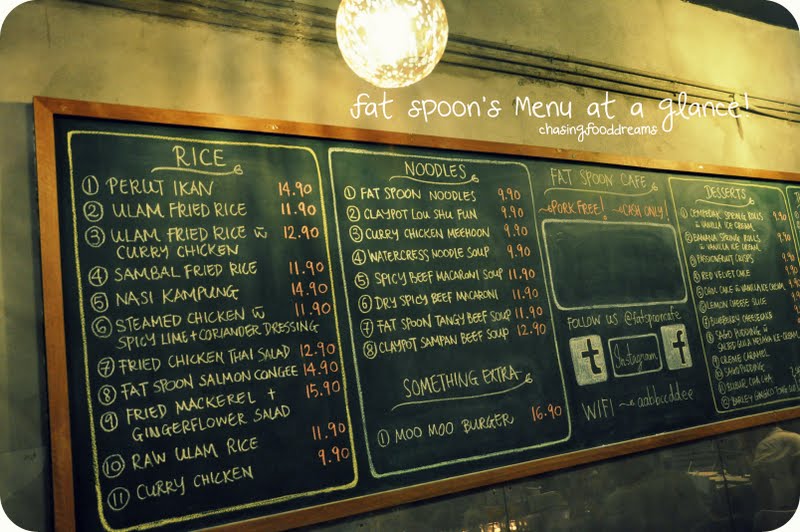 fat spoon's Menu at a glance!
chasingfooddreams
RICE
① PERUT IKAN 14.90
② ULAM FRIED RICE 11.90
③ ULAM FRIED RICE w̄ 12.90
CURRY CHICKEN
④ SAMBAL FRIED RICE 11.90
⑤ NASI KAMPUNG 14.90
⑥ STEAMED CHICKEN w̄ 11.90
SPICY LIME + CORIANDER DRESSING
⑦ FRIED CHICKEN THAI SALAD 12.90
⑧ FAT SPOON SALMON CONGEE 14.90
⑨ FRIED MACKEREL + 15.90
GINGERFLOWER SALAD
⑩ RAW ULAM RICE 11.90
⑪ CURRY CHICKEN 9.90
NOODLES
① FAT SPOON NOODLES 9.90
② CLAYPOT LOU SHU FUN 9.90
③ CURRY CHICKEN MEEHOON 9.90
④ WATERCRESS NOODLE SOUP 9.90
⑤ SPICY BEEF MACARONI SOUP 11.90
⑥ DRY SPICY BEEF MACARONI 11.90
⑦ FAT SPOON TANGY BEEF SOUP 11.90
⑧ CLAYPOT SAMPAN BEEF SOUP 12.90
SOMETHING EXTRA
① MOO MOO BURGER 16.90
FAT SPOON CAFE
~PORK FREE! ~CASH ONLY!
FOLLOW US @fatspooncafe
t Instagram f
WIFI ~ aabbccddee
DESSERTS
① CEMPEDAK SPRING ROLLS
w̄ VANILLA ICE CREAM
② BANANA SPRING ROLLS
w̄ VANILLA ICE CREAM
③ PASSIONFRUIT CRISPS
④ RED VELVET CAKE
⑤ ORAL CAKE w̄ VANILLA ICE CREAM
⑥ LEMON CHEESE SLICE
⑦ BLUEBERRY CHEESECAKE
⑧ SAGO PUDDING w̄
SALTED GULA MELAKA ICE-CREAM
⑨ CREME CARAMEL
⑩ SAGO PUDDING
⑪ BUBUR CHA CHA
⑫ BARLEY GINGKO